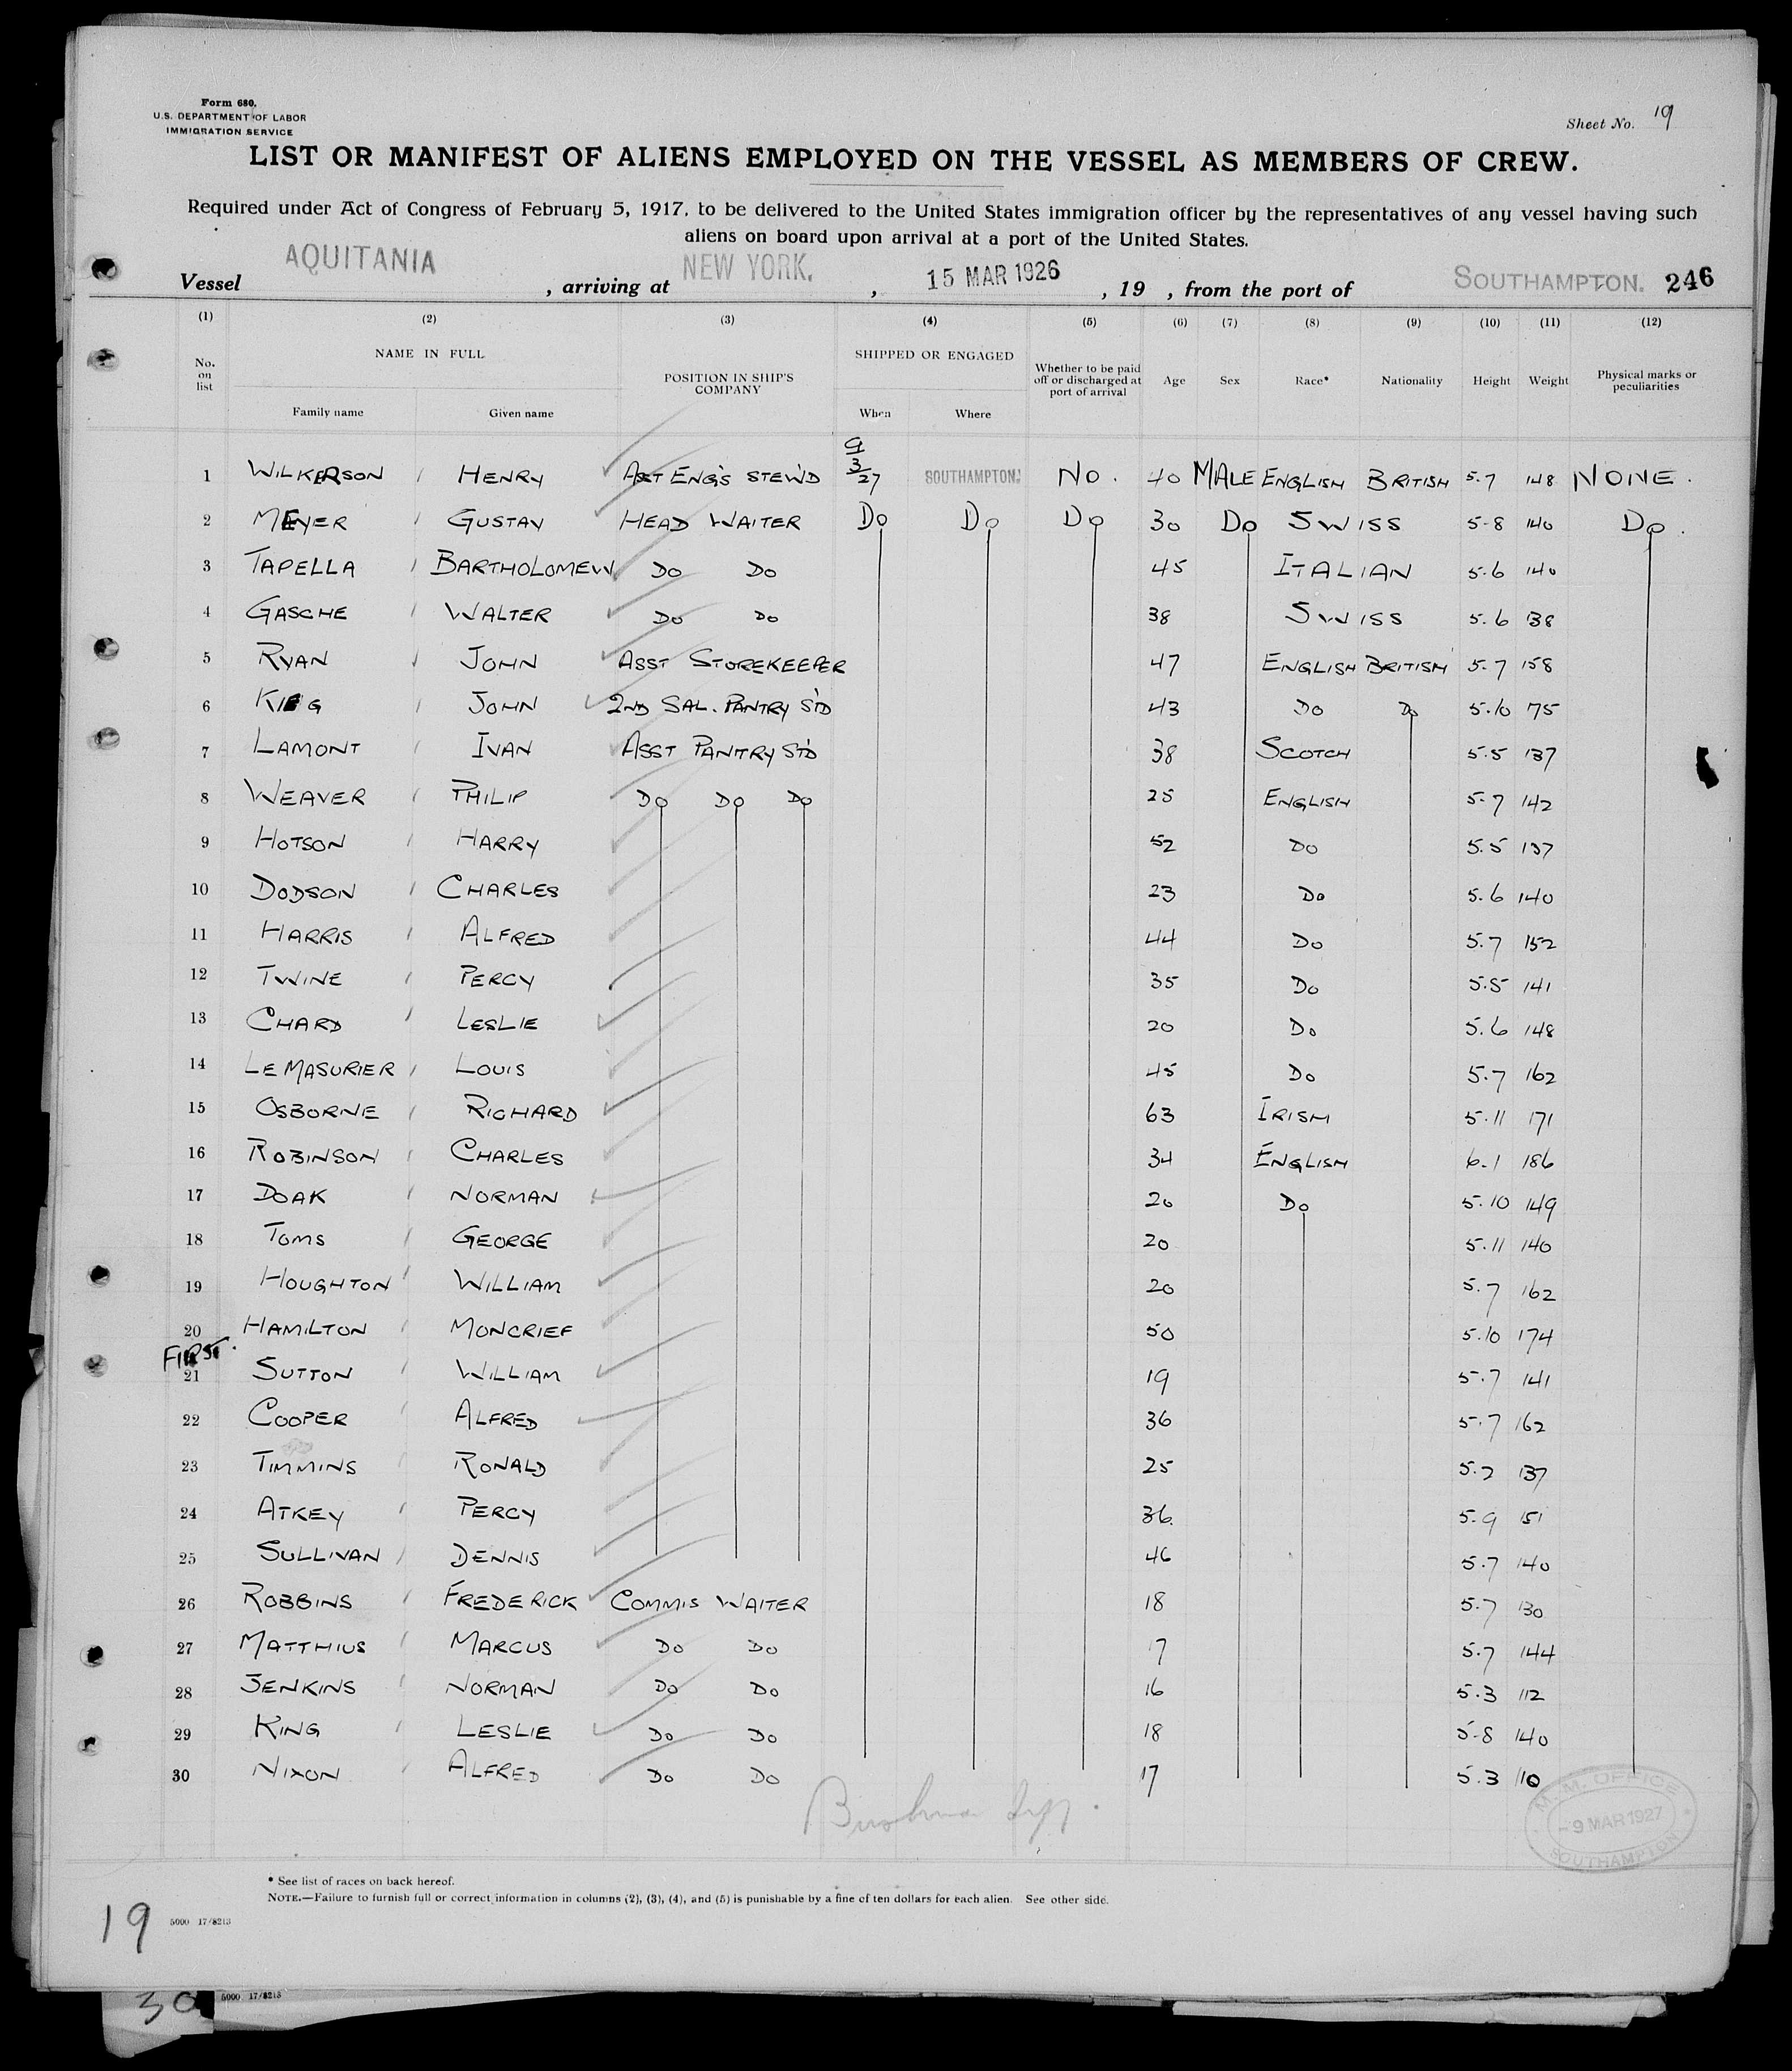 Form 680.
U.S. DEPARTMENT OF LABOR
IMMIGRATION SERVICE
Sheet No. 19
LIST OR MANIFEST OF ALIENS EMPLOYED ON THE VESSEL AS MEMBERS OF CREW.
Required under Act of Congress of February 5, 1917, to be delivered to the United States immigration officer by the representatives of any vessel having such
aliens on board upon arrival at a port of the United States.
Vessel AQUITANIA, arriving at NEW YORK., 15 MAR 1926, 19 , from the port of SOUTHAMPTON. 246
(1) (2) (3) (4) (5) (6) (7) (8) (9) (10) (11) (12)
No. on list NAME IN FULL Family name Given name POSITION IN SHIP'S COMPANY SHIPPED OR ENGAGED When Where Whether to be paid off or discharged at port of arrival Age Sex Race* Nationality Height Weight Physical marks or peculiarities
1 WILKERSON HENRY ASST ENG'S STEW'D 9/3/27 SOUTHAMPTON. NO. 40 MALE ENGLISH BRITISH 5.7 148 NONE.
2 MEYER GUSTAV HEAD WAITER DO DO DO 30 DO SWISS 5-8 140 DO.
3 TAPELLA BARTHOLOMEW DO DO 45 ITALIAN 5.6 140
4 GASCHE WALTER DO DO 38 SWISS 5.6 138
5 RYAN JOHN ASST STOREKEEPER 47 ENGLISH BRITISH 5.7 158
6 KING JOHN 2ND SAL. PANTRY ST'D 43 DO DO 5.10 175
7 LAMONT IVAN ASST PANTRY ST'D 38 SCOTCH 5.5 137
8 WEAVER PHILIP DO DO DO 25 ENGLISH 5.7 142
9 HOTSON HARRY 52 DO 5.5 137
10 DODSON CHARLES 23 DO 5.6 140
11 HARRIS ALFRED 44 DO 5.7 152
12 TWINE PERCY 35 DO 5.5 141
13 CHARD LESLIE 20 DO 5.6 148
14 LE MASURIER LOUIS 45 DO 5.7 162
15 OSBORNE RICHARD 63 IRISH 5.11 171
16 ROBINSON CHARLES 34 ENGLISH 6.1 186
17 DOAK NORMAN 20 DO 5.10 149
18 TOMS GEORGE 20 5.11 140
19 HOUGHTON WILLIAM 20 5.7 162
20 HAMILTON MONCRIEF 50 5.10 174
FIRST.
21 SUTTON WILLIAM 19 5.7 141
22 COOPER ALFRED 36 5.7 162
23 TIMMINS RONALD 25 5.7 137
24 ATKEY PERCY 36. 5.9 151
25 SULLIVAN DENNIS 46 5.7 140
26 ROBBINS FREDERICK COMMIS WAITER 18 5.7 130
27 MATTHIUS MARCUS DO DO 17 5.7 144
28 JENKINS NORMAN DO DO 16 5.3 112
29 KING LESLIE DO DO 18 5-8 140
30 NIXON ALFRED DO DO 17 5.3 110
M.M. OFFICE
-9 MAR 1927
SOUTHAMPTON
* See list of races on back hereof.
NOTE.—Failure to furnish full or correct information in columns (2), (3), (4), and (5) is punishable by a fine of ten dollars for each alien. See other side.
19 5000 17/8213
30 5000 17/8213